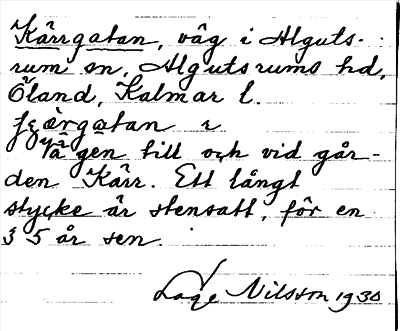 Kärrgatan, väg i Alguts-
rum sn, Algutsrums hd,
Öland, Kalmar l.
gatan
Vägen till och vid går-
den Kärr. Ett långt
stycke är stensatt, för en
35 år sen.
Lage Nilsson 1930